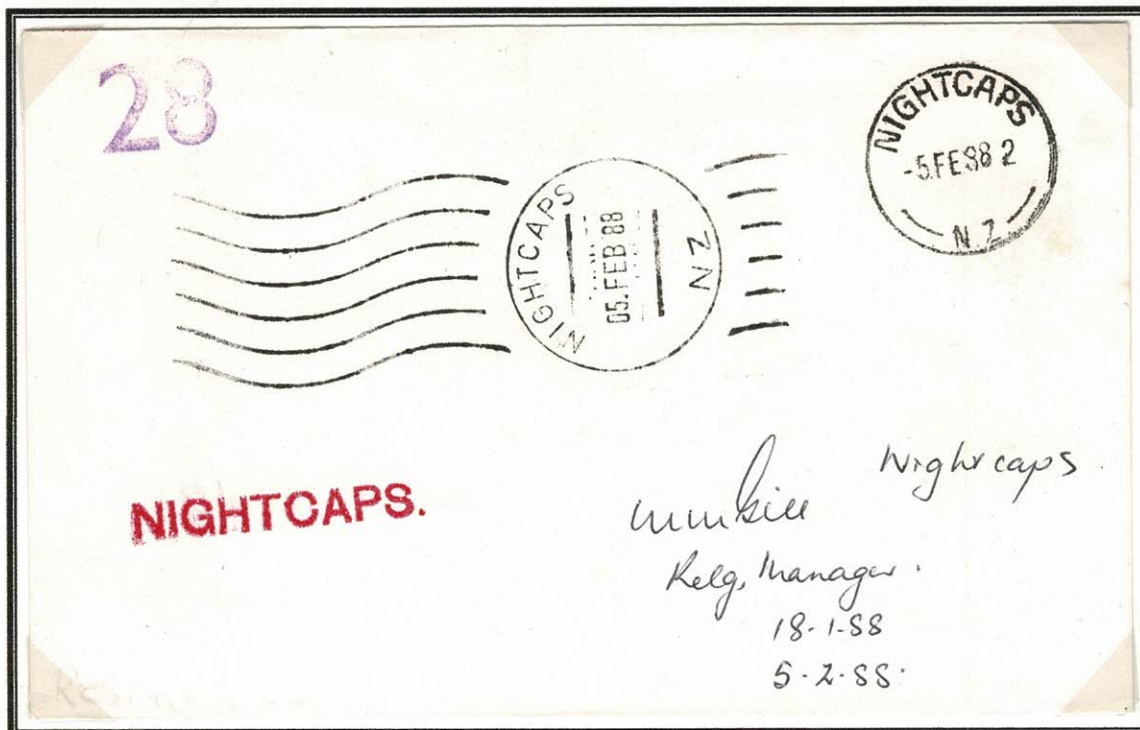 28
NIGHTCAPS
-5 FE 88 2
N.Z
NIGHTCAPS
05. FEB 88
NZ
NIGHTCAPS.
Nightcaps
Relg, Manager.
18-1-88
5-2-88.